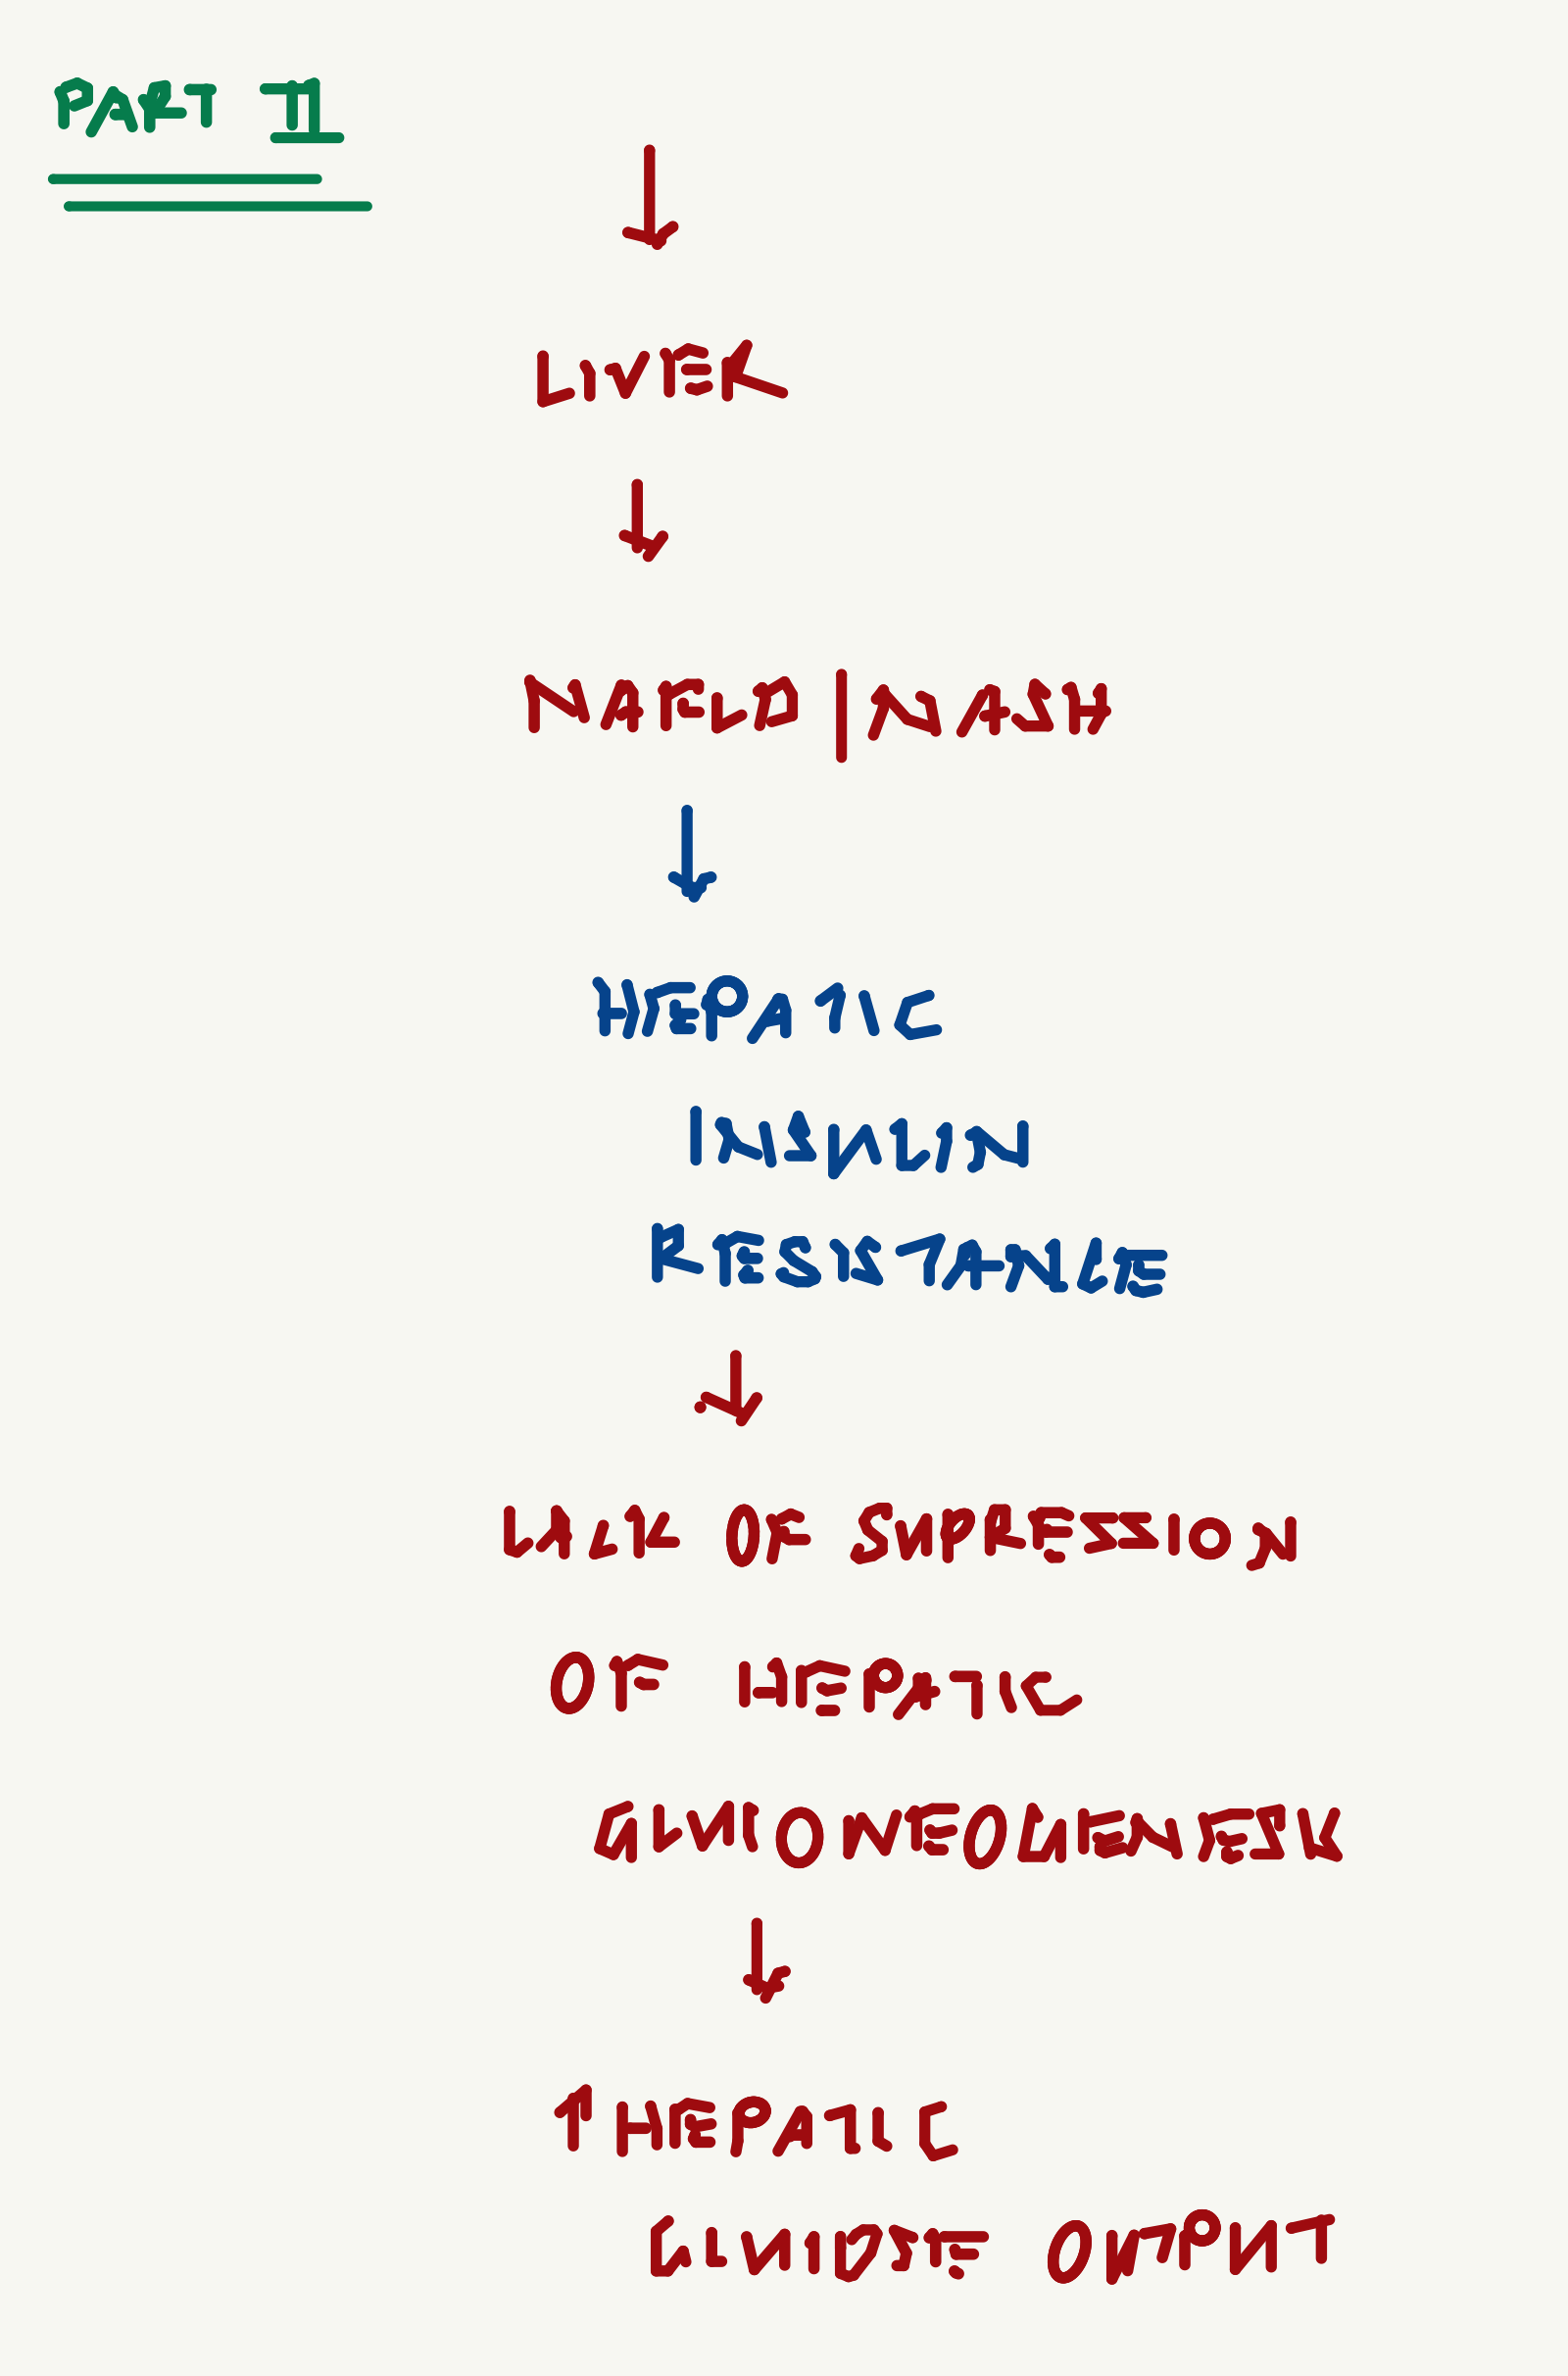 PART II
↓
LIVER
↓
NAFLD | NASH
↓
HEPATIC
INSULIN
RESISTANCE
↓
LACK OF SUPRESSION
OF HEPATIC
GLUCONEOGENESIS
↓
↑ HEPATIC
GLUCOSE OUTPUT